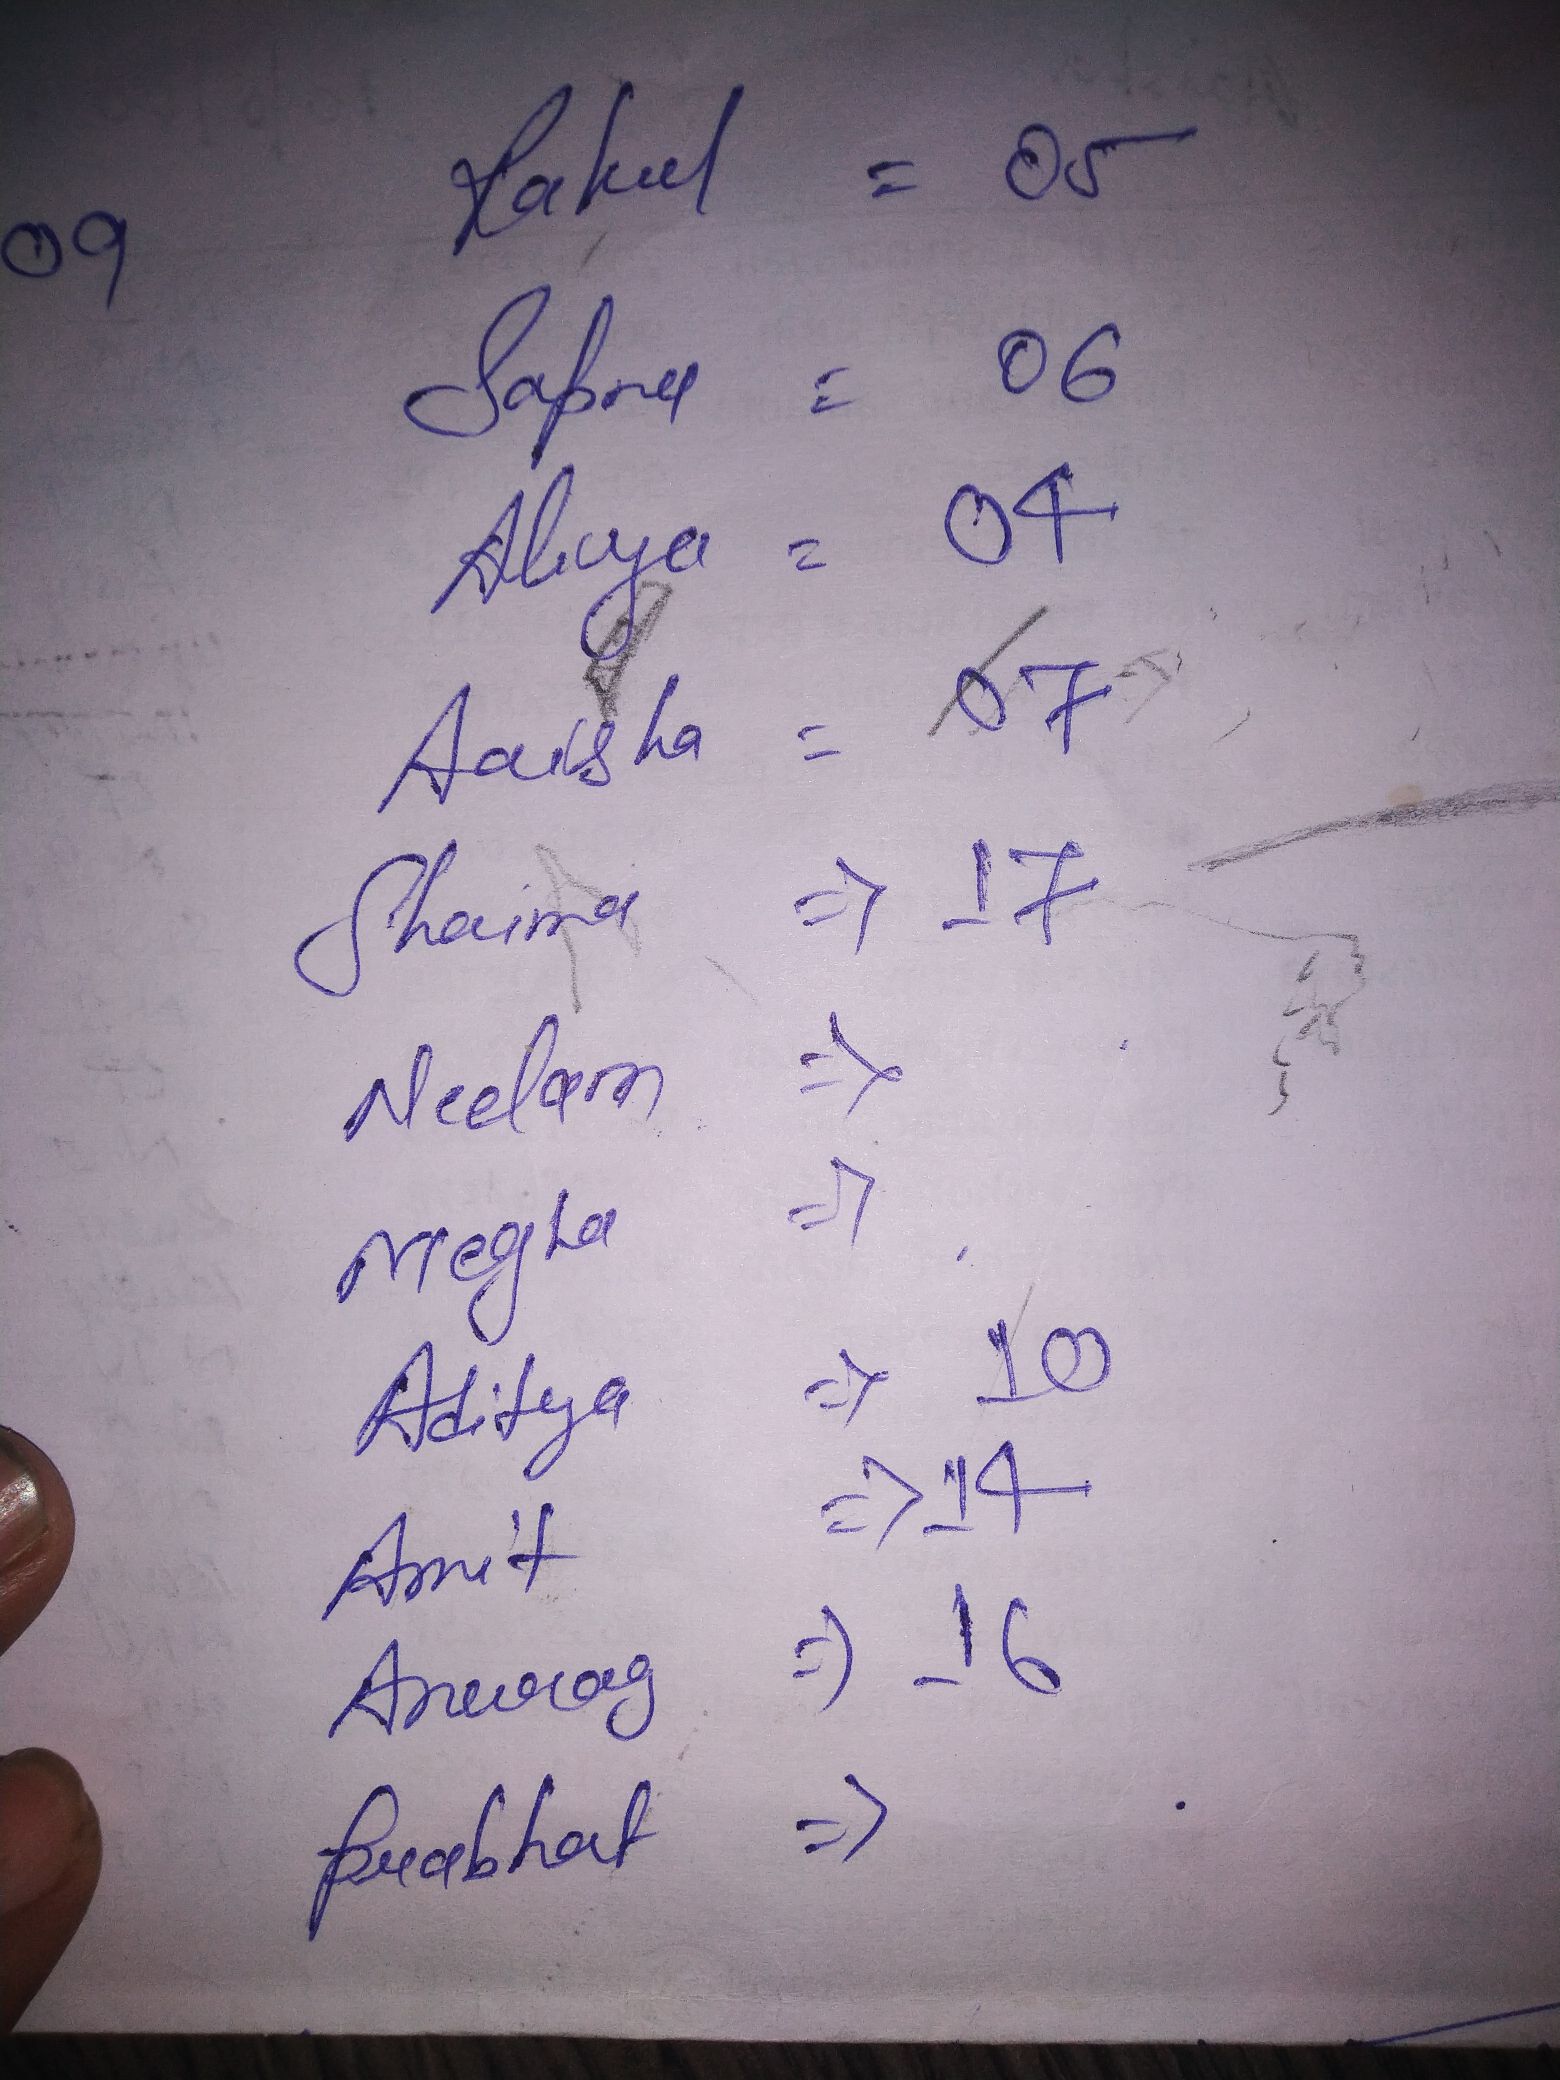 09
Rahul = 05
Sapna = 06
= 04
Aaisha = 07
Shaima => 17
Neelam =>
Megha =>
Aditya => 10
Amit => 14
Anurag => 16
Prabhat =>